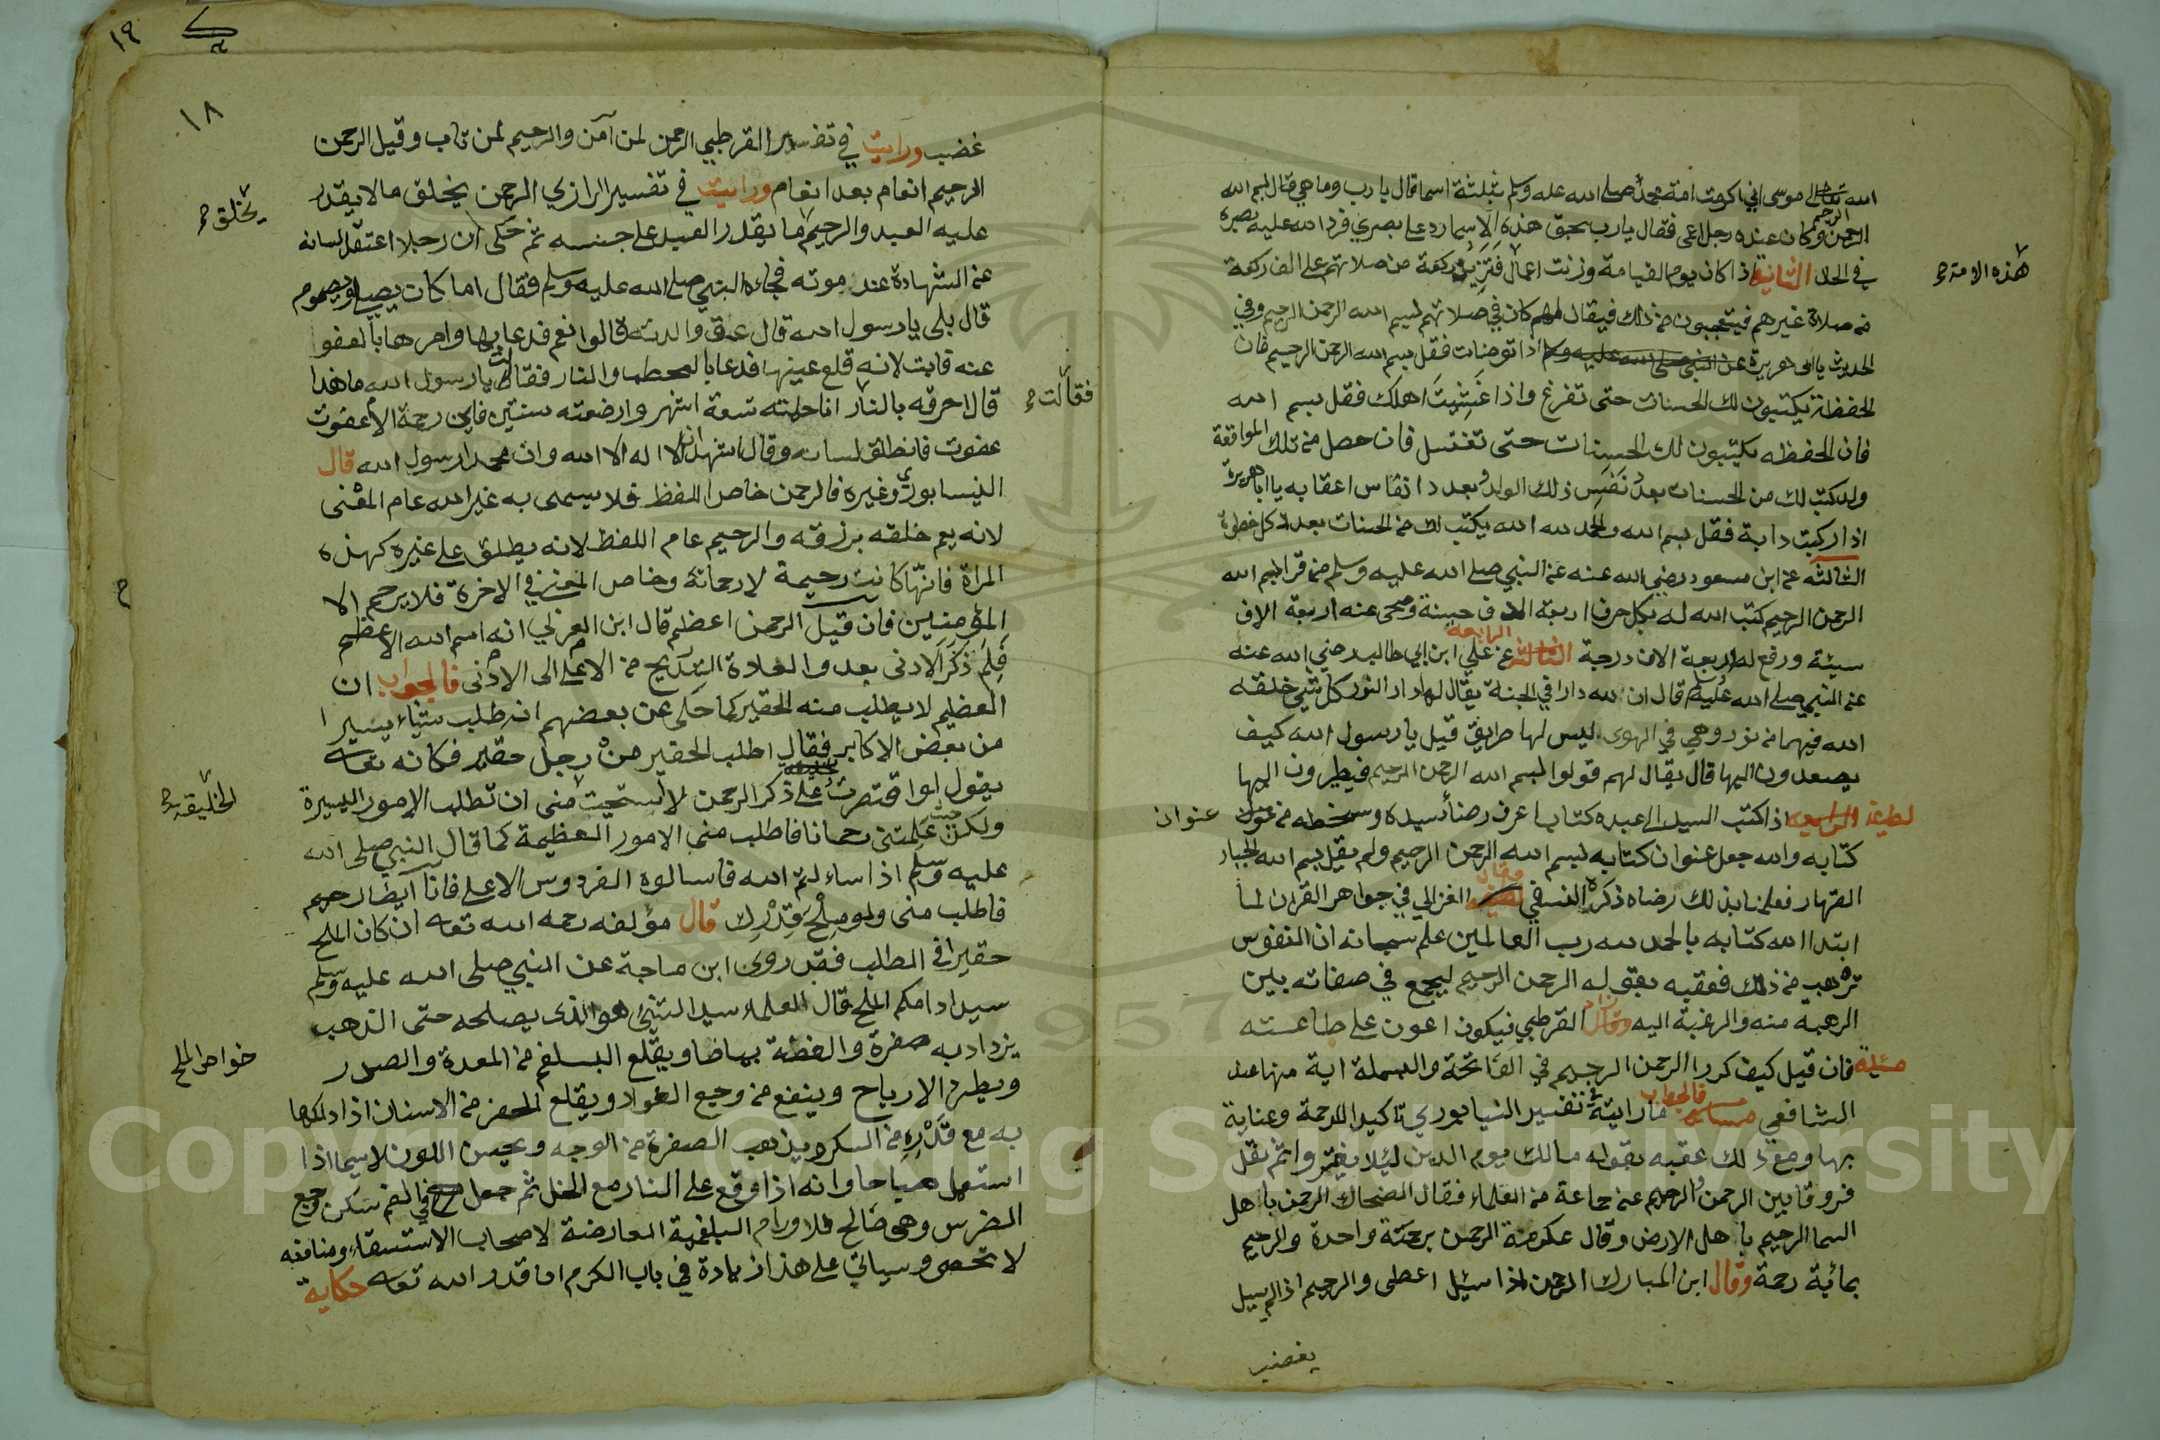 الله تعالى موسى اني اكرمت امة محمد صلى الله عليه وسلم بثلثة اسما قال يا رب وما هي قال بسم الله
الرحمن الرحيم وكان عنده رجل اعمى فقال يارب بحق هذه الاسما رد علي بصري فرد الله عليه بصره
في الحال الثانية اذا كان يوم القيامة وزنت اعمال فتزيد ركعة من صلاتهم على الف ركعة
هذه الامة
من صلاة غيرهم فيتعجبون من ذلك فيقال لهم كان في صلاتهم بسم الله الرحمن الرحيم وفي
الحديث يا ابى هريرة اذا توضات فقل بسم الله الرحمن الرحيم فان
الحفظة يكتبون لك الحسنات حتى تفرغ واذا غشيت اهلك فقل بسم الله
فان الحفظه يكتبون لك الحسنات حتى تغتسل فان حصل من تلك المواقعة
ولد كتب لك من الحسنات بعدد نفس ذلك الولد وبعدد انفاس اعقابه يا اباهريرة
اذا ركبت دابة فقل بسم الله والحمد لله يكتب لك من الحسنات بعدد كل خطوة
الثالثة عن ابن مسعود رضي الله عنه عن النبي صلى الله عليه وسلم من قرا بسم الله
الرحمن الرحيم كتب الله له بكل حرف اربعة الاف حسنة ومحى عنه اربعة الاف
سيئة ورفع له اربعة الاف درجة الرابعة عن علي ابن ابي طالب رضي الله عنه
عن النبي صلى الله عليه وسلم قال ان لله دارا في الجنة يقال لها دار النور كل شي خلقه
الله فيها من نور وهي في الهوى ليس لها طرايق قيل يا رسول الله كيف
يصعدون اليها قال يقال لهم قولوا بسم الله الرحمن الرحيم فيطيرون اليها
لطيفة اذا كتب السيد الى عبده كتابا عرف رضاء سيده وسخطه من عنوان
عنوان
كتابه والله جعل عنوان كتابه بسم الله الرحمن الرحيم ولم يقل بسم الله الجبار
القهار فعلمنا بذلك رضاه ذكره النسفي وقال الغزالي في جواهر القران لما
ابتدا الله كتابه بالحمد لله رب العالمين علم سبحانه ان النفوس
ترهب من ذلك فعقبه بقوله الرحمن الرحيم ليجمع في صفاته بين
الرهبه منه والرغبة اليه القرطبي فيكون اعون على طاعته
مسئلة فان قيل كيف كرر الرحمن الرحيم في الفاتحة والبسملة اية منها عند
الشافعي فالجواب ما رايته في تفسير النيسابوري تاكيد للرحمة وعناية
بها ومع ذلك عقبه بقوله مالك يوم الدين ليلا يغتروا ثم نقل
فروقا بين الرحمن والرحيم عن جماعة من العلماء فقال الضحاك الرحمن باهل
السما الرحيم باهل الارض وقال عكرمة الرحمن برحمة واحدة والرحيم
بمائية رحمة وقال ابن المبارك الرحمن اذا سيل اعطى والرحيم اذا لم يسيل
يغضب
١٩
١٨
غضب ورايت في تفسير القرطبي الرحمن لمن آمن والرحيم لمن تاب وقيل الرحمن
الرحيم انعام بعد انعام ورايت في تفسير الرازي الرحمن يخلق ما لا يقدر
يخلق
عليه العبد والرحيم ما يقدر العبد على جنسه ثم حكى ان رجلا اعتقل لسانه
عن الشهادة عند موته فجاءه النبي صلى الله عليه وسلم فقال اما كان يصلي ويصوم
قال بلى يا رسول الله قال عق والدته قالوا نعم فدعا بها وامرها بالعفو
عنه فابت لانه قلع عينها فدعا بالحطب والنار فقالت يا رسول الله ما هذا
فقالت
قال احرقه بالنار انا حملته تسعة اشهر وارضعته سنتين فاين رحمة الام عفوت
عفوت فانطلق لسانه وقال اشهد ان لا اله الا الله وان محمدا رسول الله قال
النيسابوري وغيره فالرحمن خاص اللفظ فلا يسمى به غير الله عام المعنى
لانه يعم خلقه برزقه والرحيم عام اللفظ لانه يطلق على غيره كهذه
المراة فانها كانت رحيمة لا رحمانة وخاص المعنى في الاخرة فلا يرحم الا
المؤمنين فان قيل الرحمن اعظم قال ابن العربي انه اسم الله الاعظم
فلم ذكر الادنى بعد والعادة التدريج من الاعلى الى الادنى فالجواب ان
العظيم لا يطلب منه الحقير كما حكى عن بعضهم انه طلب شيئا يسيرا
من بعض الاكابر فقال اطلب الحقير من رجل حقير فكانه تعالى
يقول لو اقتصرت على ذكر الرحمن لاستحيت مني ان تطلب الامور اليسيرة
ولكن علمتني رحمانا فاطلب مني الامور العظيمة كما قال النبي صلى الله
عليه وسلم اذا سالتم الله فاسالوه الفردوس الاعلى فانا ايضا رحيم
فاطلب مني ولو ملح قدرك قال مؤلفه رحمه الله تعالى ان كان الملح
حقيرا في المطلب فقد روى ابن ماجة عن النبي صلى الله عليه وسلم
سيد ادامكم الملح قال العلماء سيد الشيء هو الذي يصلحه حتى الذهب
يزداد به صفرة والفضة بياضا ويقلع البلغم من المعدة والصدر
خواص الملح
ويطرد الارياح وينفع من وجع الفواد ويقلع الحفر من الاسنان اذا دلكها
به مع قدره من السكر ويذهب الصفرة من الوجه ويحسن اللون لاسيما اذا
استعمل صباحا وانه اذا وقع على النار مع الخل ثم جعل في الفم سكن وجع
الضرس وهى صالح للاورام البلغمية العارضة لاصحاب الاستسقاء ومنافعه
لا تحصى وسياتي على هذا زيادة في باب الكرم ان قدر الله تعالى حكاية